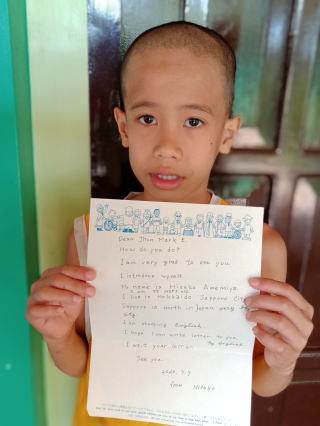 Dear Jhon Mark E.
How do you do?
I am very glad to see you
I introduce myself.
My name is Hisako Amemiya.
I am 75 years old
I live in Hokkaido Sapporo City
Sapporo is north in Japan very big
city.
I am studying English.
I hope I can write letter to you
by English.
I wait your letter.
See you.
from Hisako